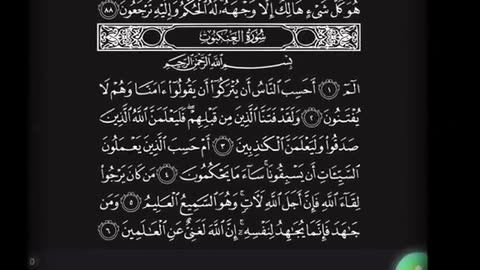 هُوَ كُلُّ شَىْءٍ هَالِكٌ إِلَّا وَجْهَهُۥ لَهُ ٱلْحُكْمُ وَإِلَيْهِ تُرْجَعُونَ ٨٨
سُورَةُ العَنكَبُوت
بِسْمِ ٱللَّهِ ٱلرَّحْمَٰنِ ٱلرَّحِيمِ
الٓمٓ ١ أَحَسِبَ ٱلنَّاسُ أَن يُتْرَكُوٓا۟ أَن يَقُولُوٓا۟ ءَامَنَّا وَهُمْ لَا
يُفْتَنُونَ ٢ وَلَقَدْ فَتَنَّا ٱلَّذِينَ مِن قَبْلِهِمْ ۖ فَلَيَعْلَمَنَّ ٱللَّهُ ٱلَّذِينَ
صَدَقُوا۟ وَلَيَعْلَمَنَّ ٱلْكَٰذِبِينَ ٣ أَمْ حَسِبَ ٱلَّذِينَ يَعْمَلُونَ
ٱلسَّيِّـَٔاتِ أَن يَسْبِقُونَا ۚ سَآءَ مَا يَحْكُمُونَ ٤ مَن كَانَ يَرْجُوا۟
لِقَآءَ ٱللَّهِ فَإِنَّ أَجَلَ ٱللَّهِ لَءَاتٍ ۚ وَهُوَ ٱلسَّمِيعُ ٱلْعَلِيمُ ٥ وَمَن
جَٰهَدَ فَإِنَّمَا يُجَٰهِدُ لِنَفْسِهِۦٓ ۚ إِنَّ ٱللَّهَ لَغَنِىٌّ عَنِ ٱلْعَٰلَمِينَ ٦